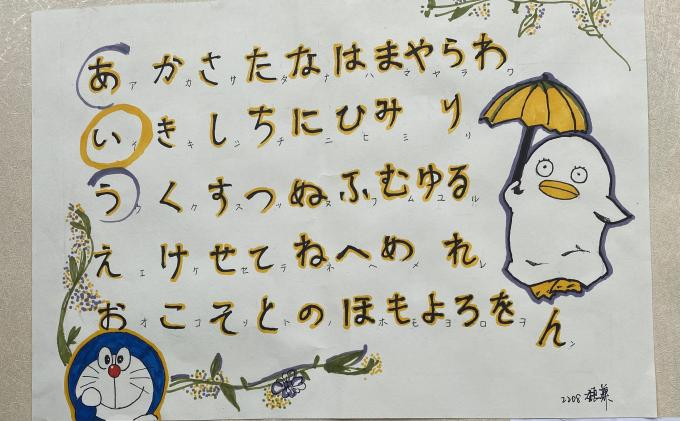 あ ア か カ さ サ た タ な ナ は ハ ま マ や ヤ ら ラ わ ワ
い イ き キ し シ ち チ に ニ ひ ヒ み ミ り リ
う ウ く ク す ス つ ツ ぬ ヌ ふ フ む ム ゆ ユ る ル
え エ け ケ せ セ て テ ね ネ へ ヘ め メ れ レ
お オ こ コ そ ソ と ト の ノ ほ ホ も モ よ ヨ ろ ロ を ヲ
ん ン
2208